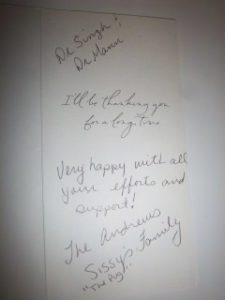 Dr Singh &
Dr Mann
I'll be thanking you
for a long time
Very happy with all
your efforts and
support!
The Andrews
Sissy's Family
"The Pig"